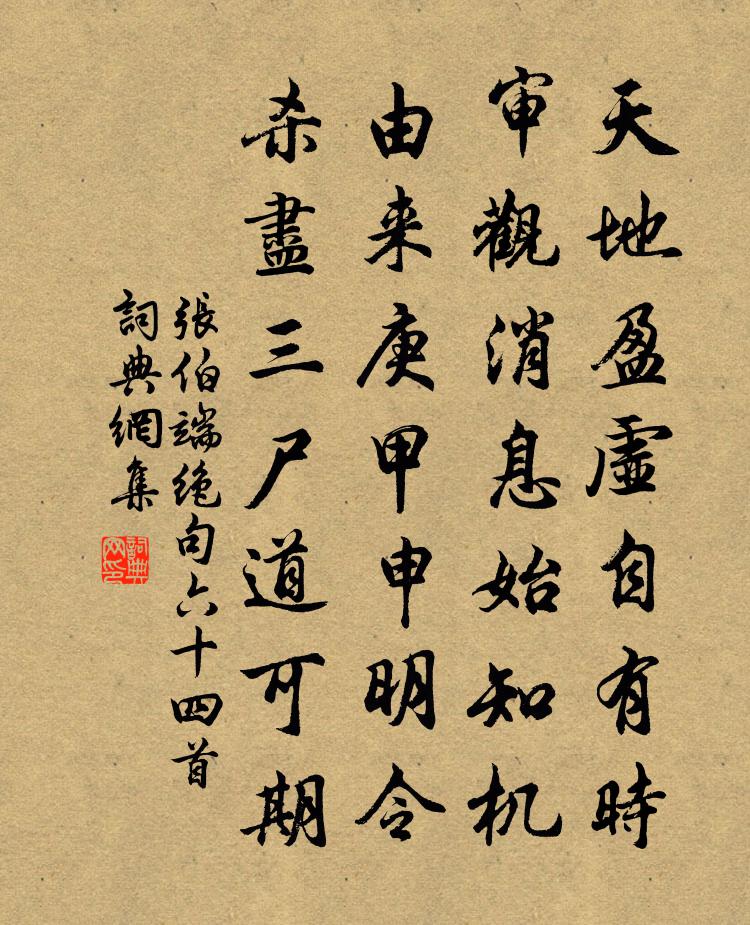 天地盈虛自有時
审觀消息始知机
由来庚甲申明令
杀盡三尸道可期
張伯端绝句六十四首
詞典網集
詞典网印